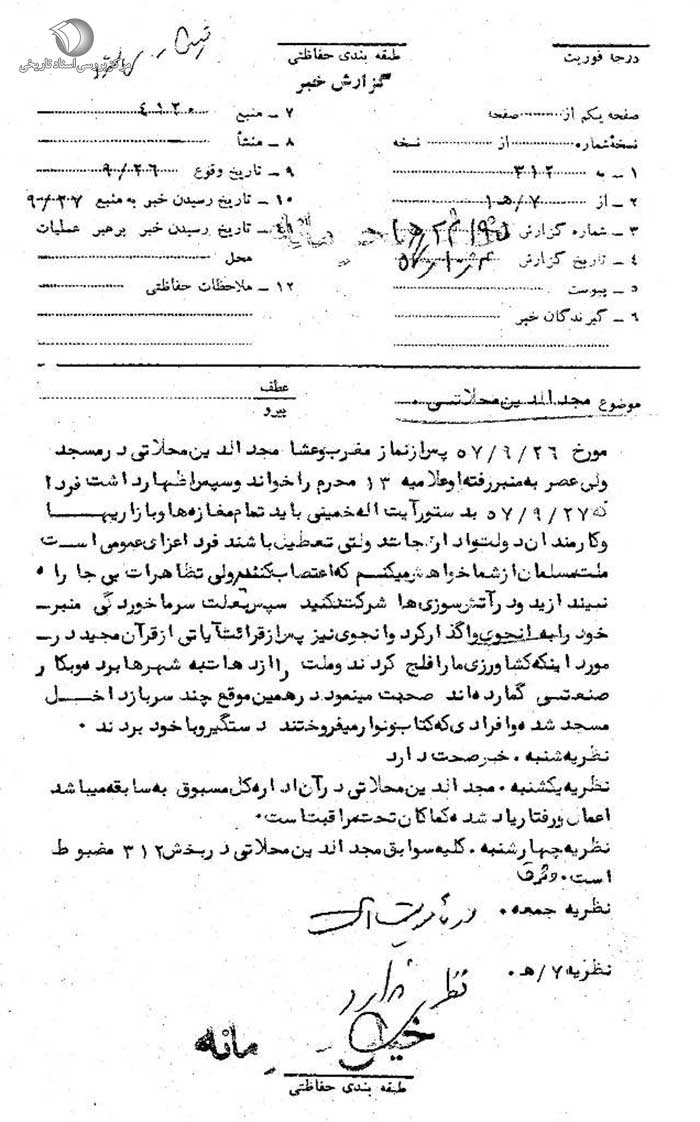 مرکز بررسی اسناد تاریخی
طبقه بندی حفاظتی
درجه فوریت
گزارش خبر
صفحه یکم از صفحه
نسخهٔ شماره از نسخه
۱ ـ به ۳۱۲
۲ ـ از ۷/هـ۱
۳ ـ شماره گزارش
۴ ـ تاریخ گزارش
۵ ـ پیوست
۶ ـ گیرندگان خبر
۷ ـ منبع ۴۱۲۰
۸ ـ منشأ
۹ ـ تاریخ وقوع ۹/۲۶
۱۰ ـ تاریخ رسیدن خبر به منبع ۹/۲۷
۱۱ ـ تاریخ رسیدن خبر برهبر عملیات
محل
۱۲ ـ ملاحظات حفاظتی
موضوع مجدالدین محلاتی
عطف
پیرو
مورخ ۵۷/۹/۲۶ پس از نماز مغرب و عشا مجدالدین محلاتی در مسجد
ولی عصر به منبر رفته و اعلامیه ۱۳ محرم را خواند و سپس اظهار داشت فردا
که ۵۷/۹/۲۷ بدستور آیت اله خمینی باید تمام مغازه ها و بازاریها
و کارمندان دولت و ادارجات دولتی تعطیل باشند فردا عزای عمومی است
ملت مسلمان از شما خواهش میکنم که اعتصاب کنید ولی تظاهرات بی جا راه
نیندازید و در آتش سوزی ها شرکت نکنید سپس بعلت سرما خوردگی منبر
خود را به انجوی واگذار کرد و انجوی نیز پس از قرائت آیاتی از قرآن مجید در
مورد اینکه کشاورزی ما را فلج کردند و ملت را از دهات به شهرها برده و بکار
صنعتی گمارده اند صحبت مینمود در همین موقع چند سرباز داخل
مسجد شده و افرادی که کتاب و نوار میفروختند دستگیر و با خود بردند .
نظریه شنبه . خبر صحت دارد
نظریه یکشنبه . مجدالدین محلاتی در آن اداره کل مسبوق به سابقه میباشد
اعمال و رفتار یاد شده کماکان تحت مراقبت است .
نظریه چهارشنبه . کلیه سوابق مجدالدین محلاتی در بخش ۳۱۲ مضبوط
است .
نظریه جمعه . در مأموریت است
نظریه ۷/هـ . نظری ندارد
خیلی محرمانه
طبقه بندی حفاظتی